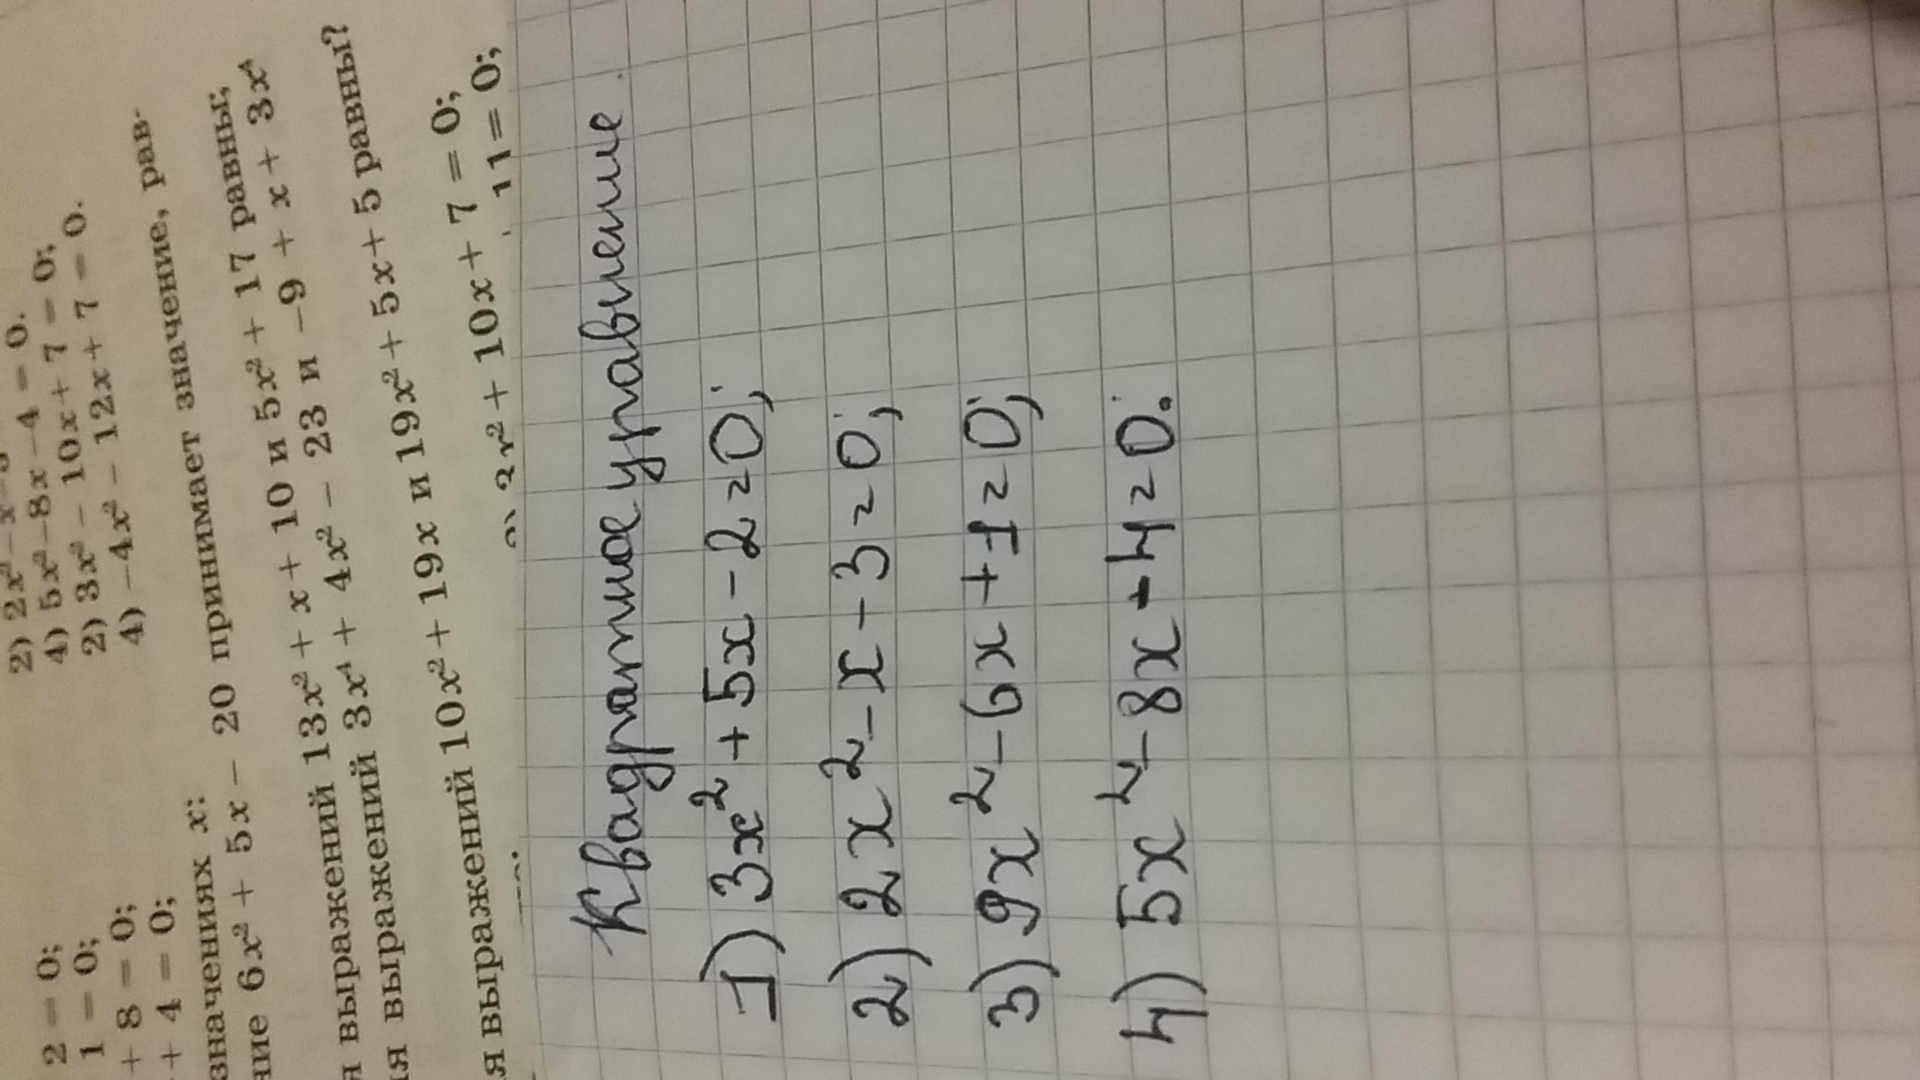 2 = 0;
1 = 0;
+ 8 = 0;
+ 4 = 0;
4) 5x² – 8x – 4 = 0.
2) 3x² – 10x + 7 = 0;
4) –4x² – 12x + 7 = 0.
значениях x:
ние 6x² + 5x – 20 принимает значение, рав-
выражений 13x² + x + 10 и 5x² + 17 равны;
я выражений 3x⁴ + 4x² – 23 и –9 + x + 3x⁴
я выражений 10x² + 19x и 19x² + 5x + 5 равны?
2x² + 10x + 7 = 0;
11 = 0;
Квадратное уравнение.
1) 3x² + 5x - 2 = 0;
2) 2x² - x - 3 = 0;
3) 9x² - 6x + 1 = 0;
4) 5x² - 8x + 4 = 0.